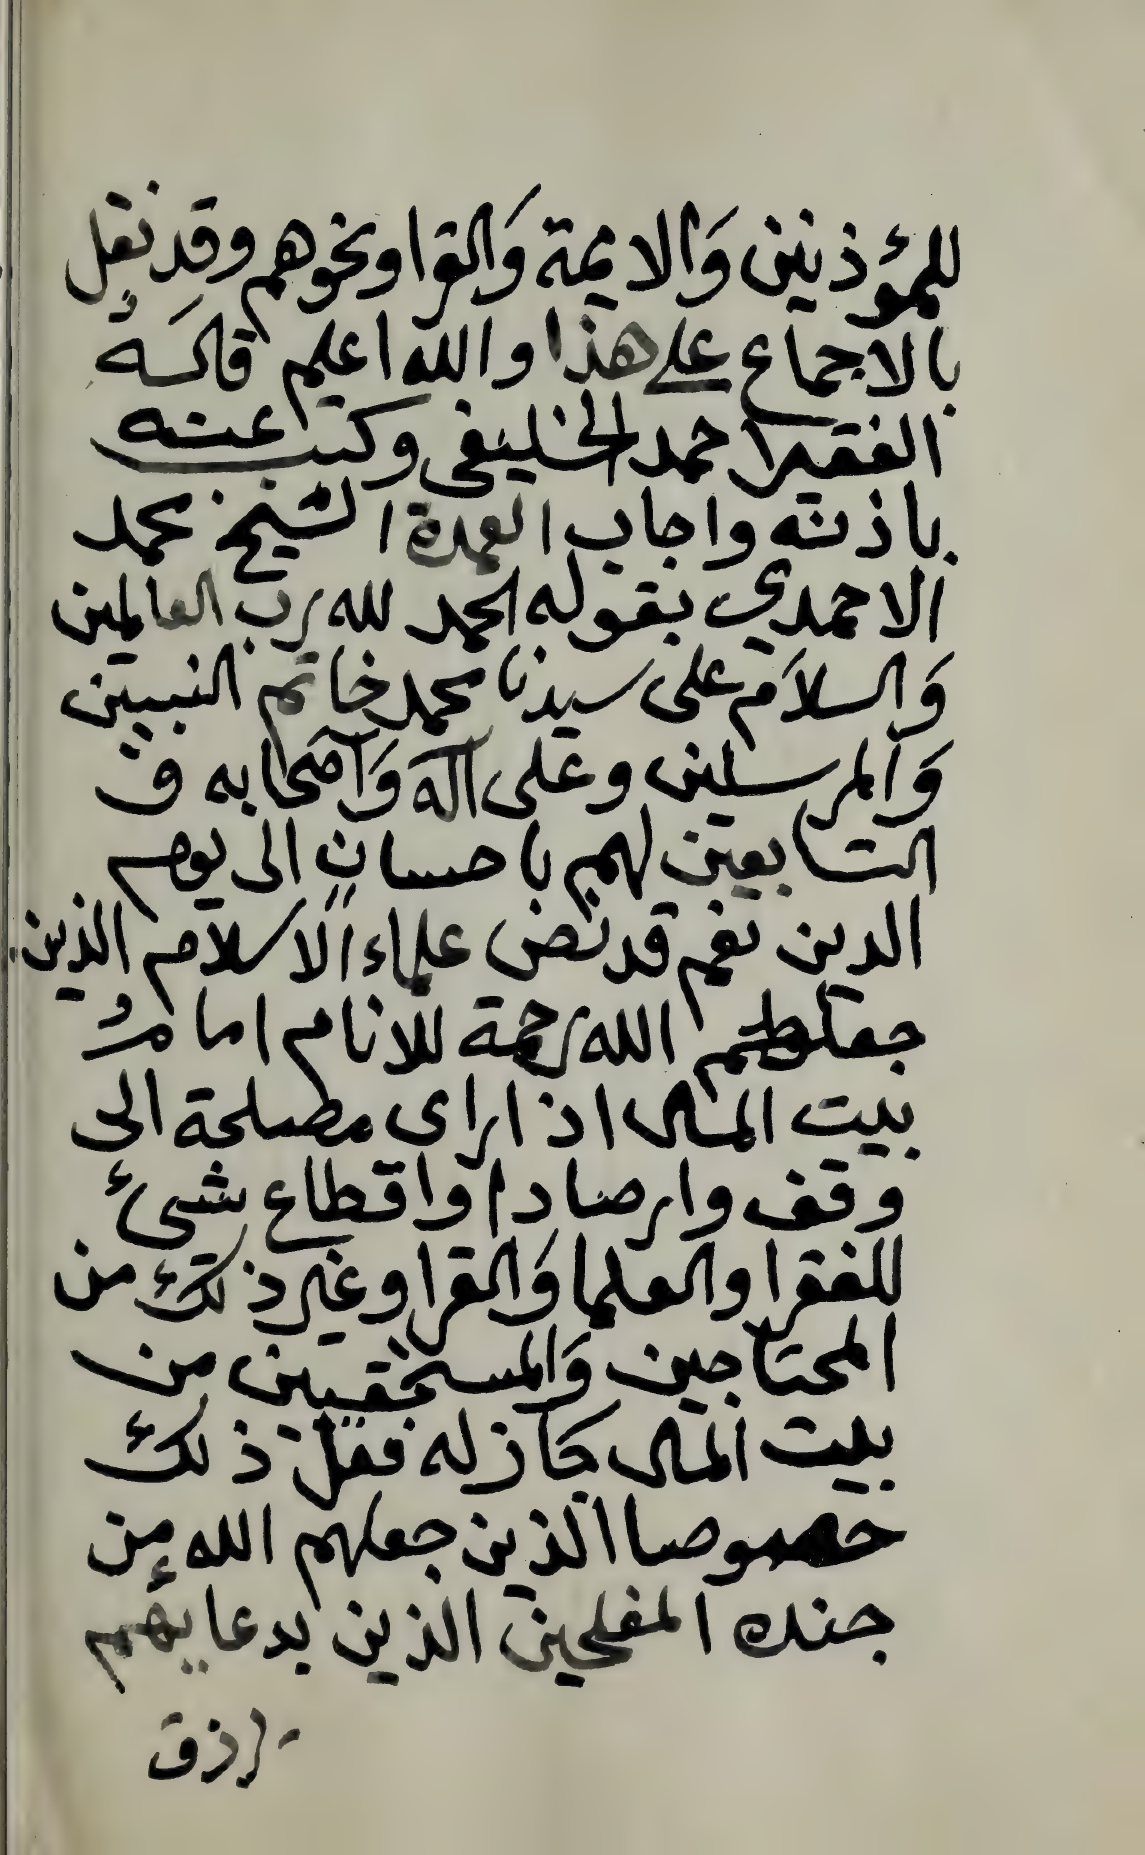 للمؤذنين والايمة والقرا ونحوهم وقد نقل
بالاجماع على هذا والله اعلم قاله
الفقير احمد الخليفى وكتب عنه
باذنه واجاب العمدة الشيخ محمد
الاحمدي بقوله الحمد لله رب العالمين
والسلام على سيدنا محمد خاتم النبيين
والمرسلين وعلى آله واصحابه و
التابعين لهم باحسان الى يوم
الدين نعم قد نص علماء الاسلام الذين
جعلهم الله رحمة للانام امام
بيت المال اذا راى مصلحة الى
وقف وارصاد واقطاع شيئ
للفقرا والعلما والقرا وغير ذلك من
المحتاجين والمستحقين من
بيت المال جاز له فعل ذلك
خصوصا الذين جعلهم الله من
جنده المفلحين الذين بدعايهم
ترزق